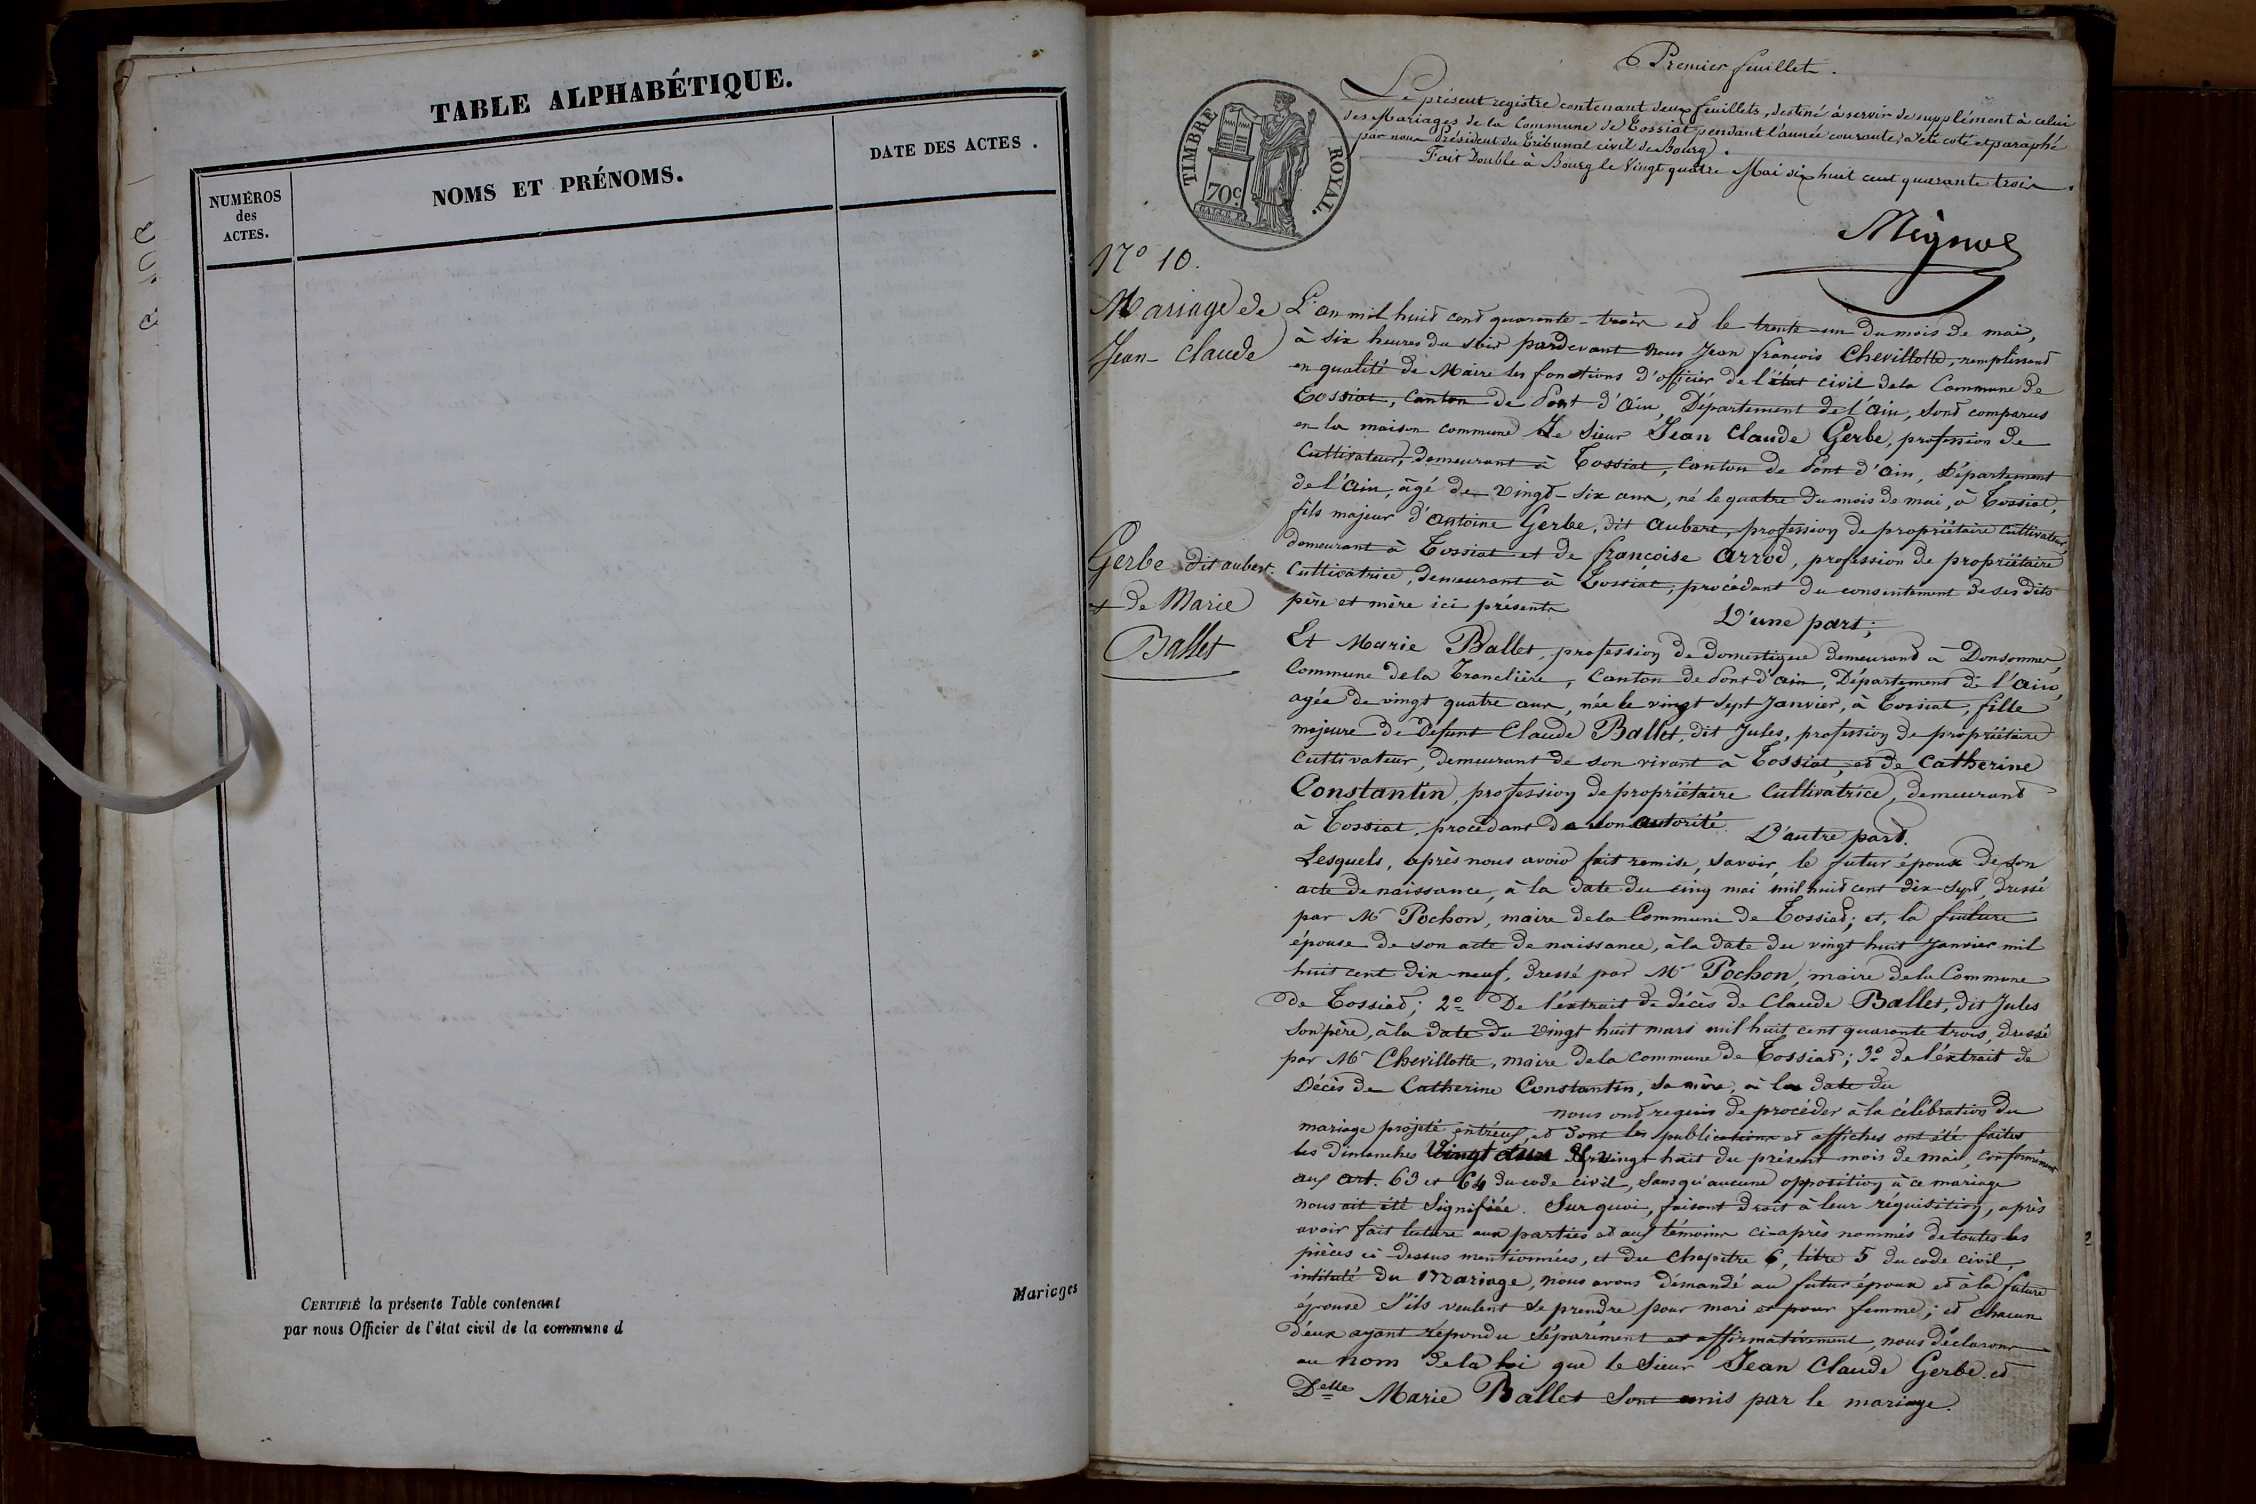 TABLE ALPHABÉTIQUE.
NUMÉROS
des
ACTES.
NOMS ET PRÉNOMS.
DATE DES ACTES .
CERTIFIÉ la présente Table contenant
Mariages
par nous Officier de l'état civil de la commune d
Premier feuillet .
Le présent registre contenant deux feuillets, destiné à servir de supplément à celui
des Mariages de la Commune de Tossiat pendant l'année courante, a été coté et paraphé
par nous Président du Tribunal civil de Bourg .
Fait Double à Bourg le Vingt quatre Mai dix huit cent quarante trois .
TIMBRE ROYAL.
70c
Mignot
N° 10.
Mariage de
Jean-Claude
Gerbe dit aubert.
+ de Marie
Ballet
L'an mil huit cent quarante-trois et le trente-un du mois de mai,
à six heures du soir pardevant nous Jean françois Chevillotte, remplissant
en qualité de Maire les fonctions d'officier de l'état civil de la Commune de
Tossiat, Canton de Pont d'Ain, Département de l'ain, sont comparus
en la maison commune Le Sieur Jean Claude Gerbe, profession de
Cultivateur, demeurant à Tossiat, Canton de Pont d'ain, Département
de l'Ain, âgé de vingt-six ans, né le quatre du mois de mai, à Tossiat,
fils majeur d'Antoine Gerbe, dit Aubert, profession de propriétaire cultivateur,
demeurant à Tossiat et de françoise Arrod, profession de propriétaire
Cultivatrice, demeurant à Tossiat, procédant du consentement de ses dits
père et mère ici présents
D'une part;
Et Marie Ballet, profession de domestique demeurant à Donsonnas,
Commune de la Tranclière, Canton de Pont d'ain, Département de l'Ain,
agée de vingt quatre ans, née le vingt sept Janvier, à Tossiat, fille
majeure de Defunt Claude Ballet, dit Jules, profession de propriétaire
Cultivateur, demeurant de son vivant à Tossiat, et de Catherine
Constantin, profession de propriétaire Cultivatrice, demeurant
à Tossiat, procédant de son autorité.
D'autre part.
Lesquels, après nous avoir fait remise, savoir, le futur époux de son
acte de naissance, à la date du cinq mai mil huit cent dix-sept, dressé
par Mr Pochon, maire de la Commune de Tossiat; et, la future
épouse de son acte de naissance, à la date du vingt huit Janvier mil
huit cent dix-neuf, dressé par Mr Pochon, maire de la Commune
de Tossiat; 2° De l'extrait de décès de Claude Ballet, dit Jules
son père, à la date du vingt huit mars mil huit cent quarante trois, dressé
par Mr Chevillotte, maire de la commune de Tossiat; 3° de l'extrait de
Décès de Catherine Constantin, sa mère, à la date du
nous ont requis de procéder à la célébration du
mariage projeté entr'eux, et dont les publications et affiches ont été faites
les dimanches vingt deux et vingt huit du présent mois de mai, conformément
aux art. 63 et 64 du code civil, sans qu'aucune opposition à ce mariage
nous ait été signifiée. Sur quoi, faisant droit à leur réquisition, après
avoir fait lecture aux parties et aux témoins ci-après nommés de toutes les
pièces ci-dessus mentionnées, et du Chapitre 6, titre 5 du code civil,
intitulé du Mariage, nous avons demandé au futur époux et à la future
épouse s'ils veulent se prendre pour mari et pour femme; et chacun
d'eux ayant répondu séparément et affirmativement, nous déclarons
au nom de la loi que le Sieur Jean Claude Gerbe et
Delle Marie Ballet sont unis par le mariage.